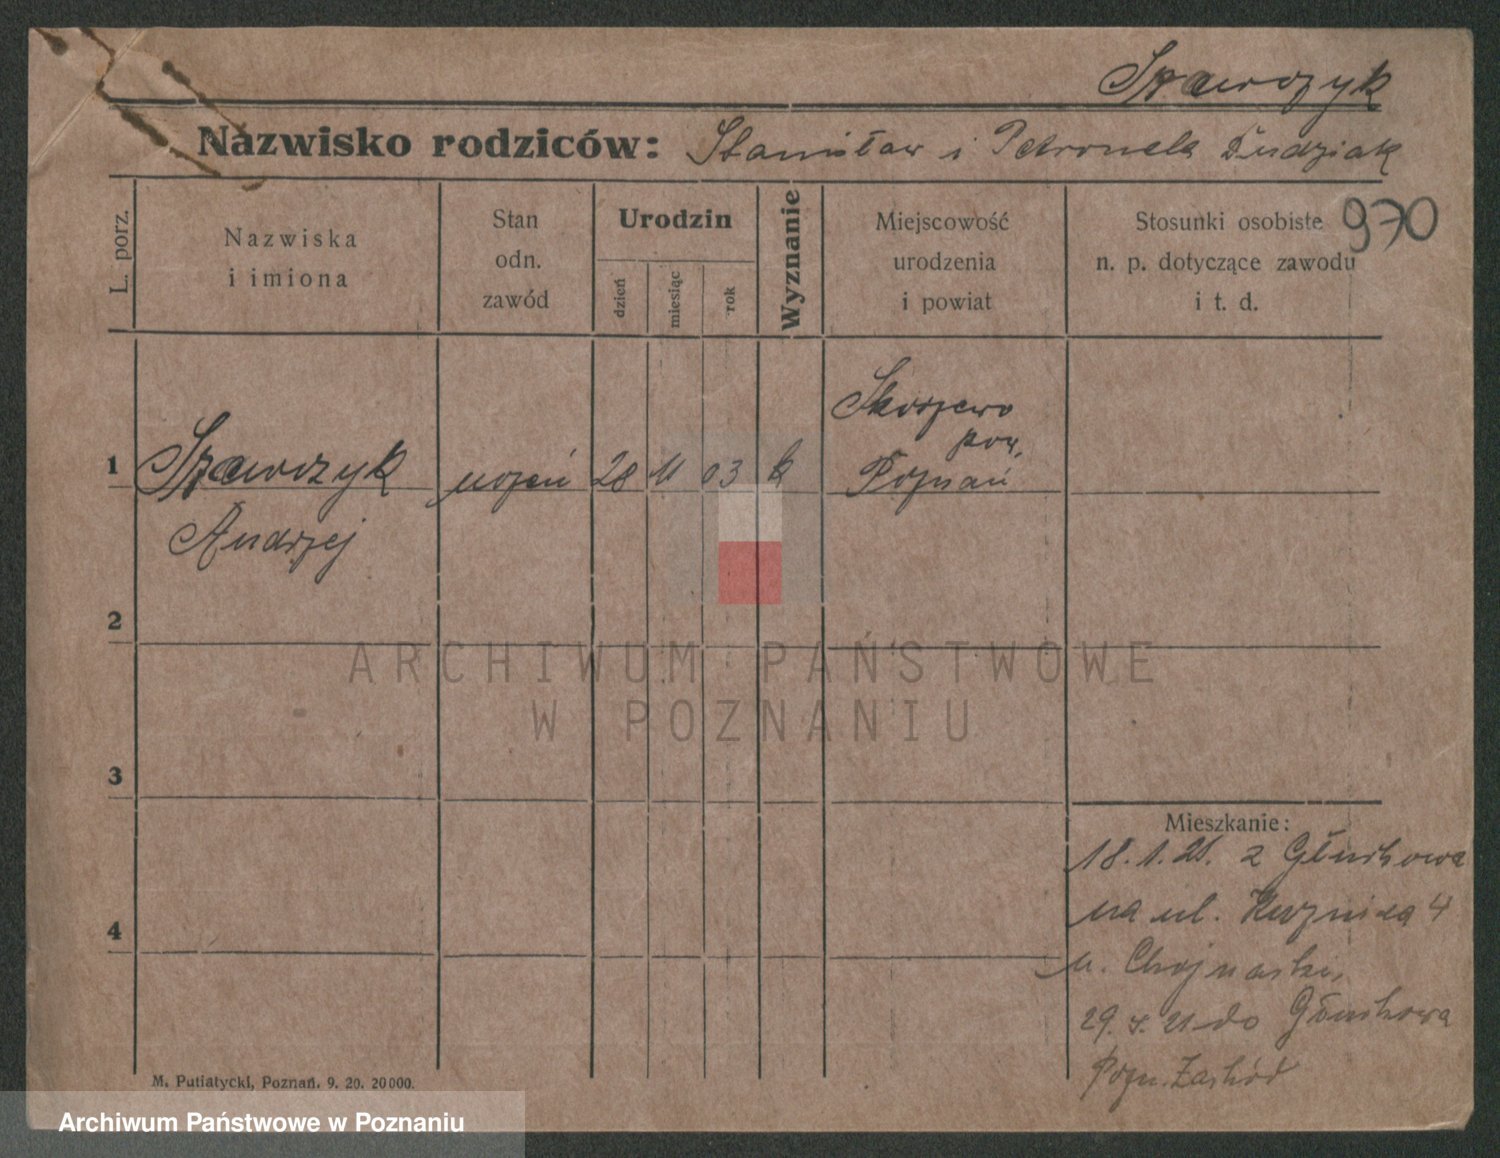 Szawczyk
Nazwisko rodziców: Stanisław i Petronela Dudziak
970
L. porz.
Nazwiska
i imiona
Stan
odn.
zawód
Urodzin
dzień
miesiąc
rok
Wyznanie
Miejscowość
urodzenia
i powiat
Stosunki osobiste
n. p. dotyczące zawodu
i t. d.
Skorzewo
pow.
1 Szawczyk uczeń 28 11 03 k Poznań
Andrzej
2
ARCHIWUM PAŃSTWOWE
W POZNANIU
3
Mieszkanie:
18.1.21. z Głuchowa
4
na ul. Kuźnicza 4
u. Chojnacki,
29. 21 do Głuchowa
Pozn. Zachód
M. Putiatycki, Poznań. 9. 20. 20000.
Archiwum Państwowe w Poznaniu